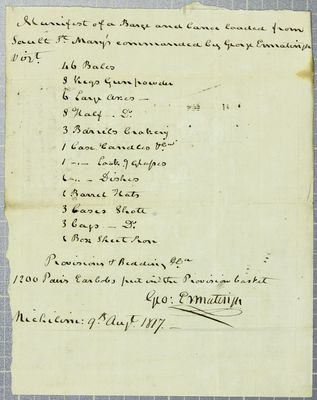 Manifest of a Barge and Canoe loaded from
Sault St. Mary's commanded by George Ermatinger
Vizt.
46 Bales
8 Kegs Gunpowder
6 Large Axes —
8 Half — Do.
3 Barrels Crockery
1 Case Candles &ca
1 -..- Look.g Glasses
1 -..- Dishes
1 Barrel Hats
3 Cases Shott
3 Bags — Do.
1 Box Sheet Iron
Provisions & Bedding &ca
1200 Pairs Earbobs put in the Provision basket
Geo: Ermatinger
Michilim: 9th Augt. 1817.